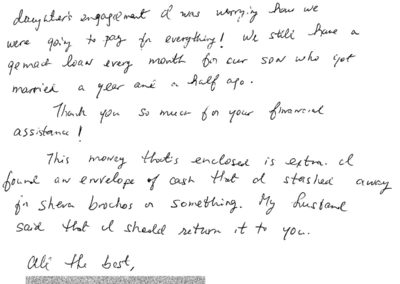 daughter's engagement I was worrying how we
were going to pay for everything! We still have a
gemach loan every month for our son who got
married a year and a half ago.
Thank you so much for your financial
assistance!
This money that's enclosed is extra. I
found an envelope of cash that I stashed away
for sheva brochos or something. My husband
said that I should return it to you.
All the best,